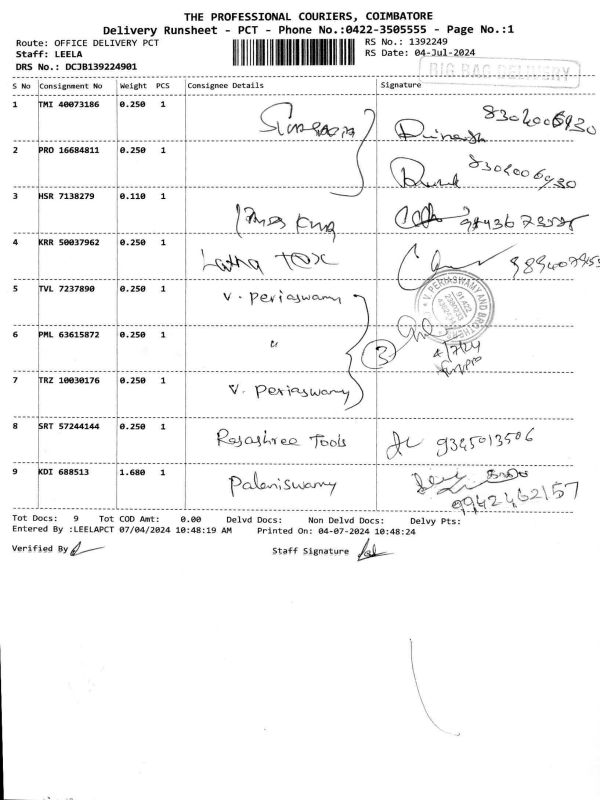 THE PROFESSIONAL COURIERS, COIMBATORE
Delivery Runsheet - PCT - Phone No.:0422-3505555 - Page No.:1
Route: OFFICE DELIVERY PCT RS No.: 1392249
Staff: LEELA RS Date: 04-Jul-2024
DRS No.: DCJB139224901
BIG BAG DELIVERY
S No Consignment No Weight PCS Consignee Details Signature
1 TMI 40073186 0.250 1
2 PRO 16684811 0.250 1
3 HSR 7138279 0.110 1
4 KRR 50037962 0.250 1 Latha Tex
5 TVL 7237890 0.250 1 V. Periaswamy
6 PML 63615872 0.250 1 " 3 4/7/24
7 TRZ 10030176 0.250 1 V. Periaswamy
8 SRT 57244144 0.250 1 Rajashree Tools 9345013506
9 KDI 688513 1.680 1 Palaniswamy 9942462157
Tot Docs: 9 Tot COD Amt: 0.00 Delvd Docs: Non Delvd Docs: Delvy Pts:
Entered By :LEELAPCT 07/04/2024 10:48:19 AM Printed On: 04-07-2024 10:48:24
Verified By Staff Signature